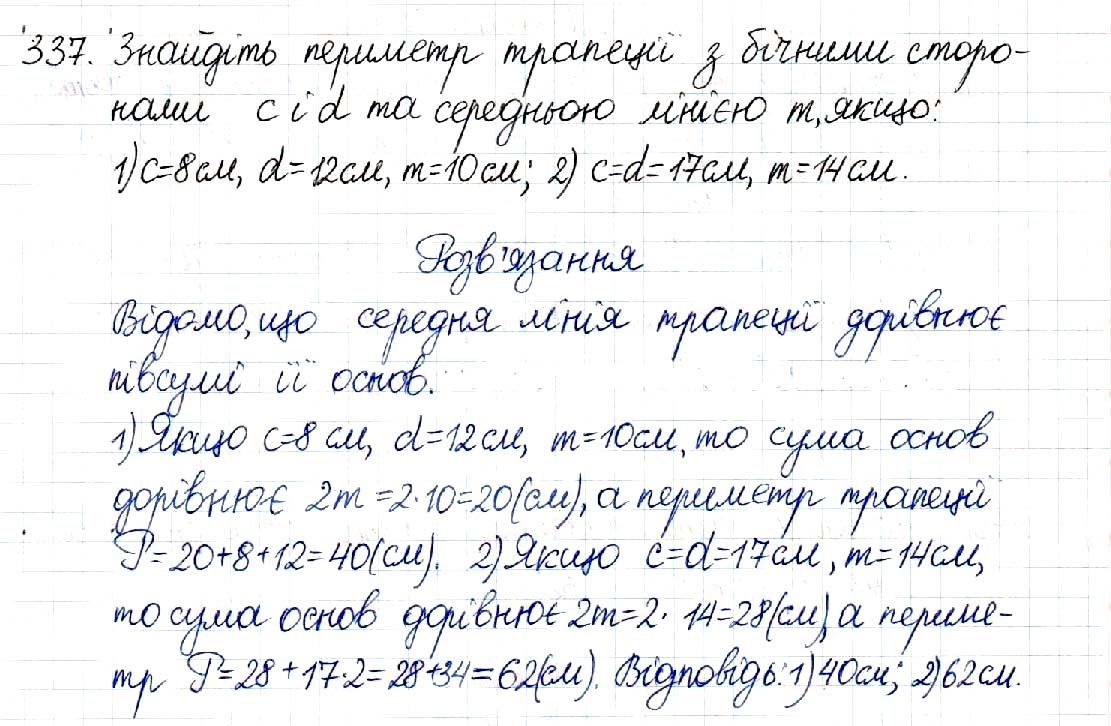 337. Знайдіть периметр трапеції з бічними сторо-
нами c і d та середньою лінією m, якщо:
1) c=8см, d=12см, m=10см; 2) c=d=17см, m=14см.
Розв'язання
Відомо, що середня лінія трапеції дорівнює
півсумі її основ.
1) Якщо c=8 см, d=12см, m=10см, то сума основ
дорівнює 2m=2·10=20(см), а периметр трапеції
P=20+8+12=40(см). 2) Якщо c=d=17см, m=14см,
то сума основ дорівнює 2m=2·14=28(см), а периме-
тр P=28+17·2=28+34=62(см). Відповідь: 1) 40см; 2) 62см.